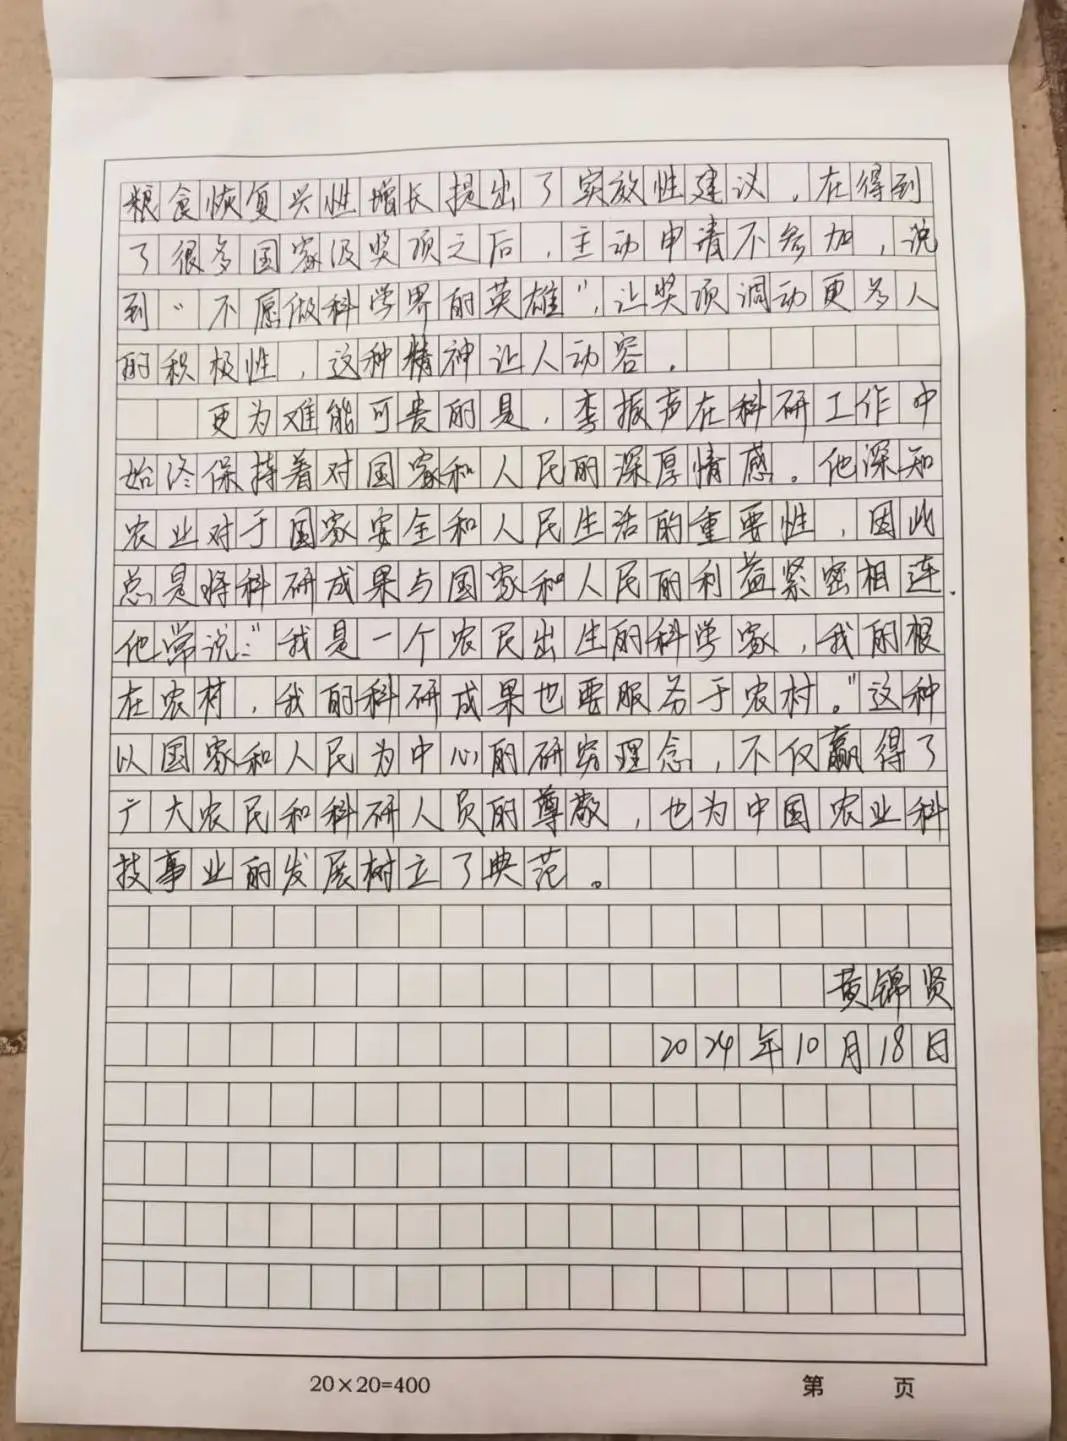 粮食恢复兴性增长提出了实放性建议，在得到
了很多国家级奖项之后，主动申请不参加，说
到“不愿做科学界的英雄”，让奖项调动更多人
的积极性，这种精神让人动容。
更为难能可贵的是，李振声在科研工作中
始终保持着对国家和人民的深厚情感。他深知
农业对于国家安全和人民生活的重要性，因此
总是将科研成果与国家和人民的利益紧密相连.
他常说：“我是一个农民出生的科学家，我的根
在农村，我的科研成果也要服务于农村。”这种
以国家和人民为中心的研究理念，不仅赢得了
广大农民和科研人员的尊敬，也为中国农业科
技事业的发展树立了典范。
黄锦贤
2024年10月18日
20×20=400 第 页